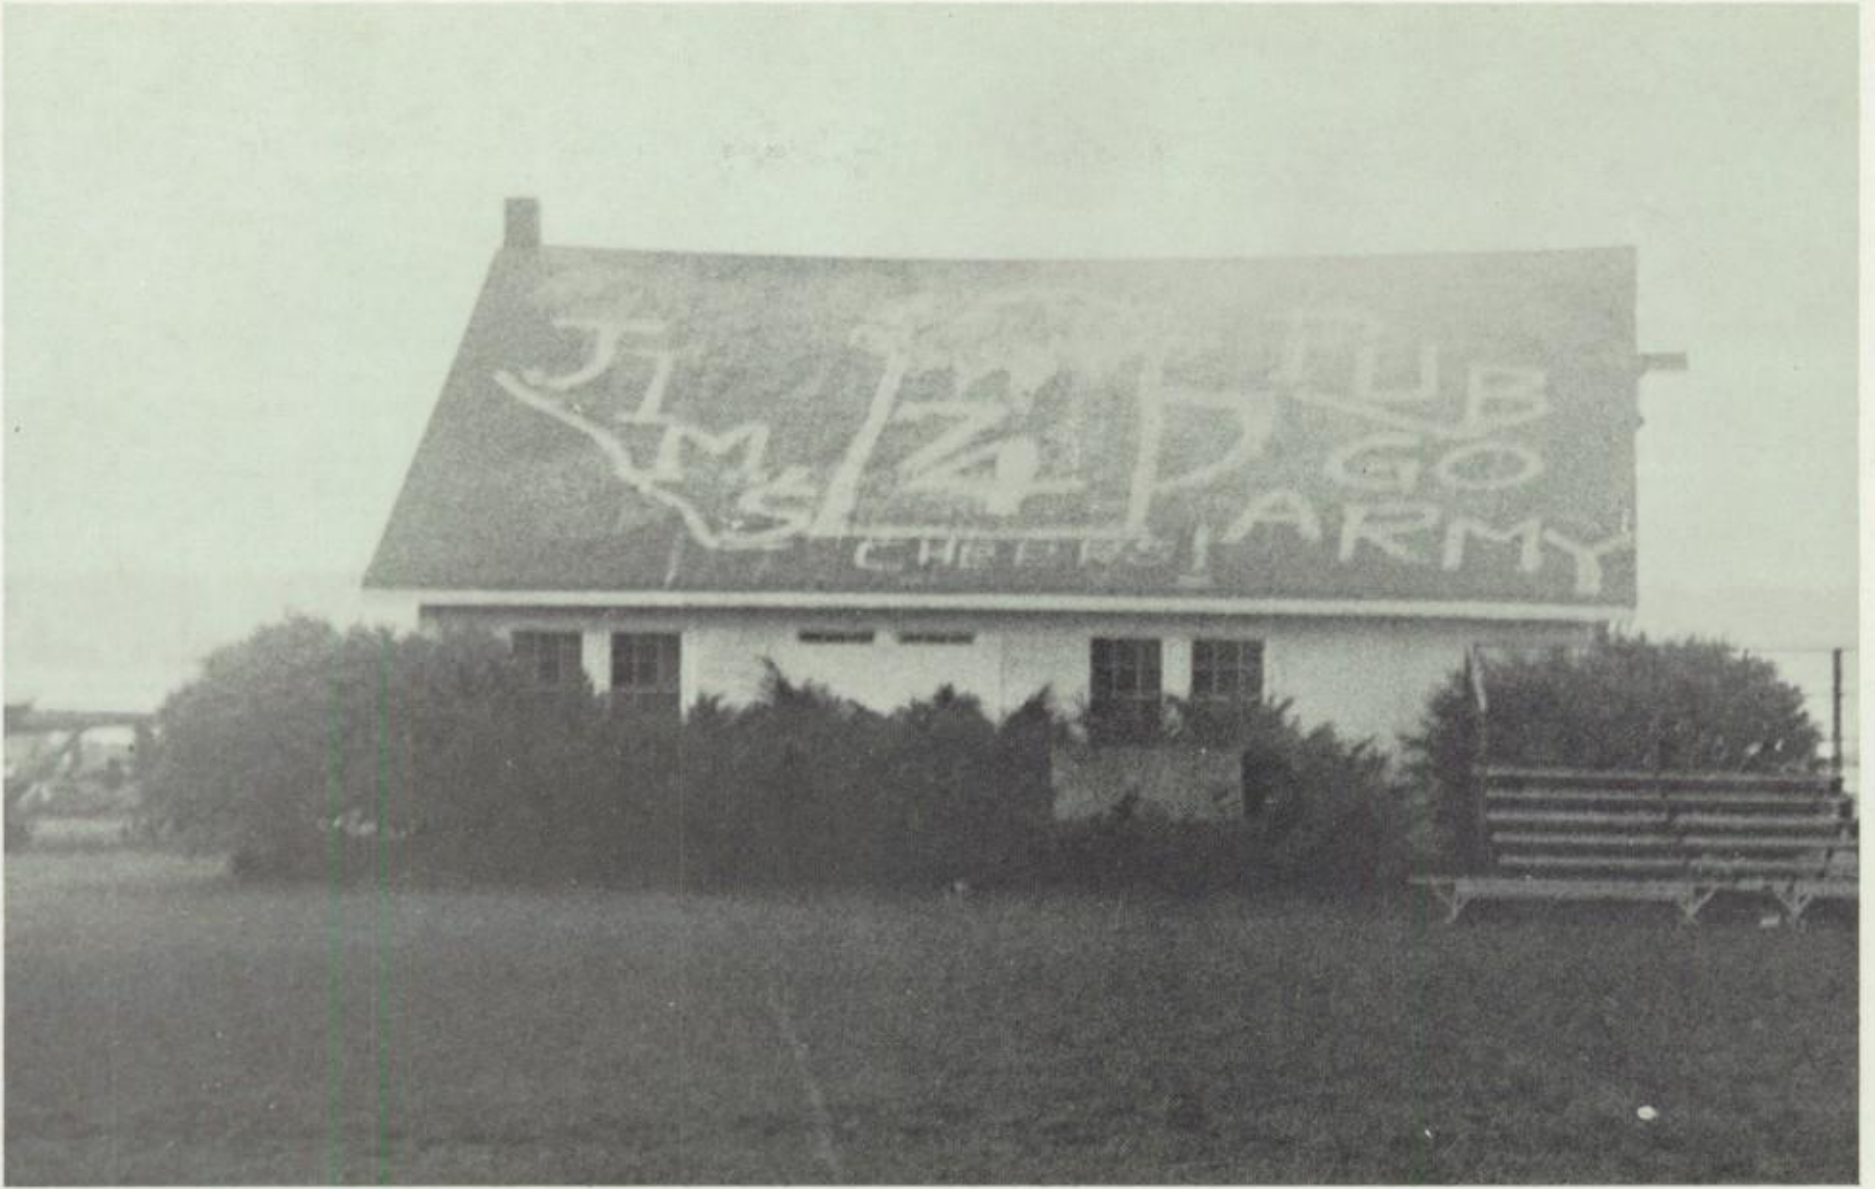 JIMS
PUB
GO
ARMY
CHEERS!